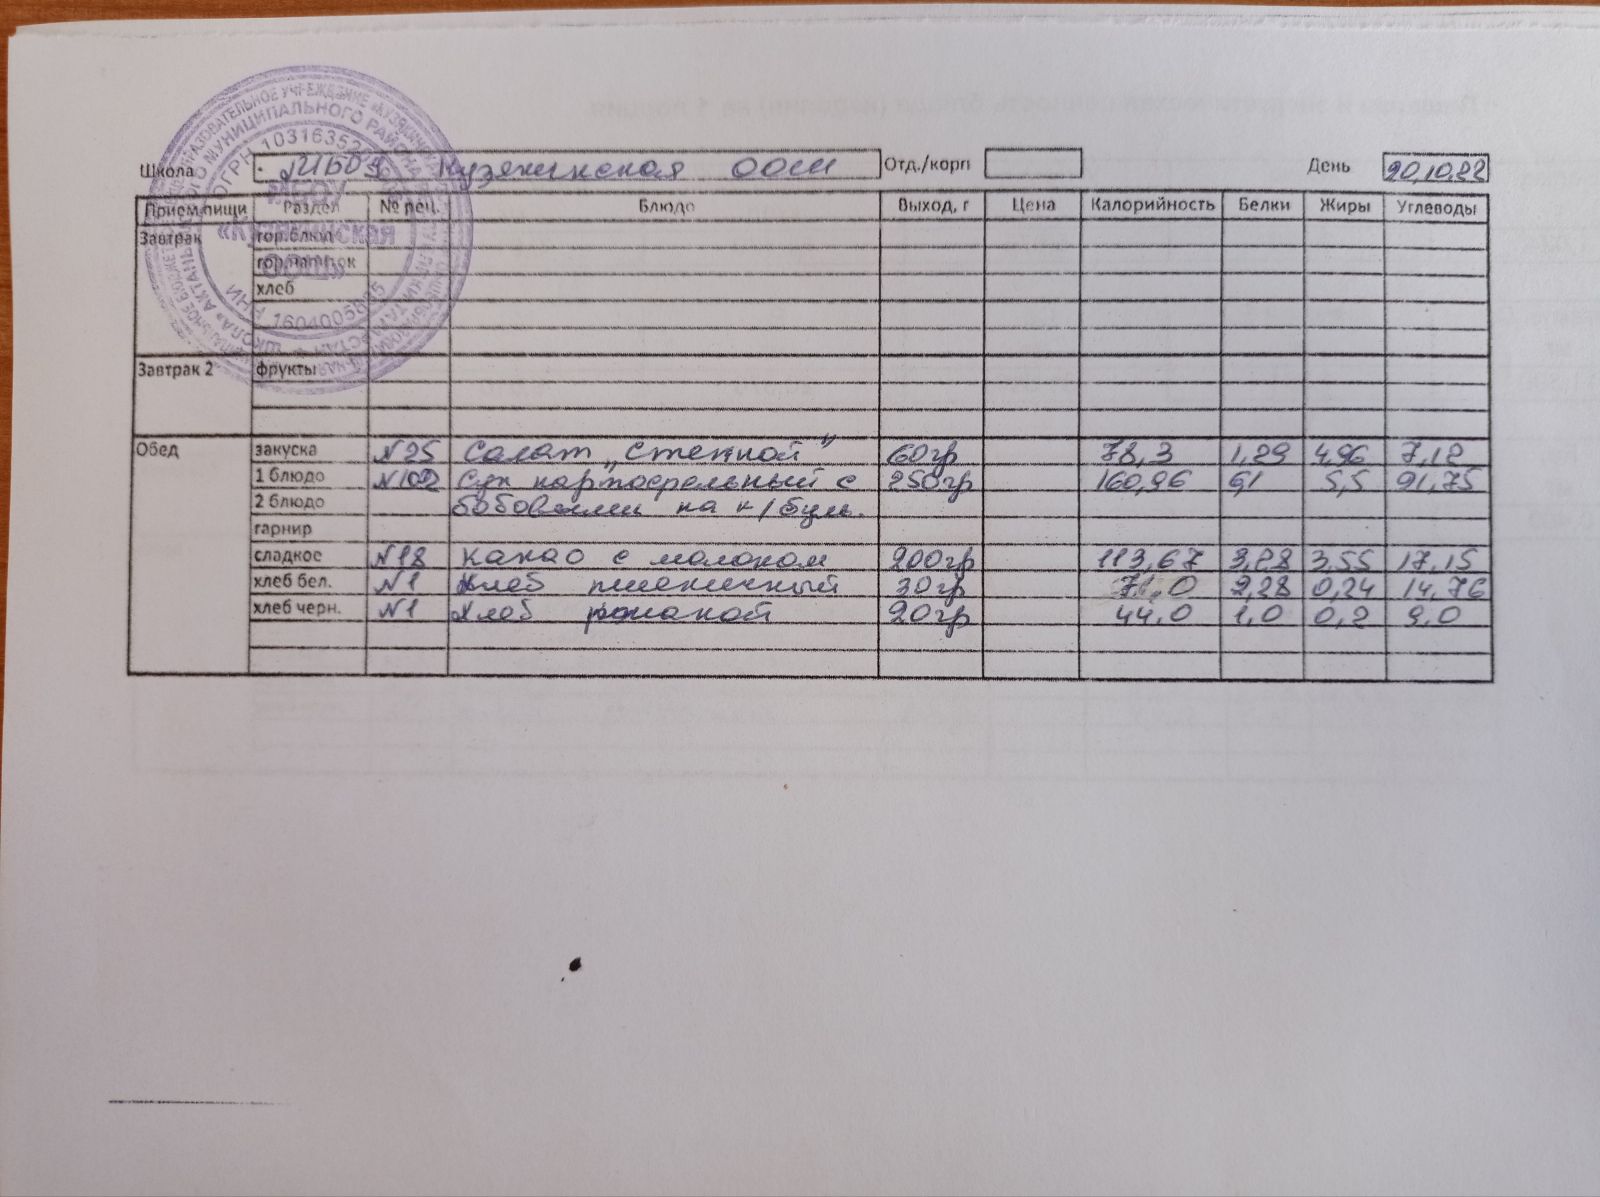 Школа МБОУ Кузякинская ООШ Отд./корп День 20.10.22
Прием пищи Раздел № рец. Блюдо Выход, г Цена Калорийность Белки Жиры Углеводы
Завтрак гор.блюдо
гор.напиток
хлеб
Завтрак 2 фрукты
Обед закуска №25 Салат „Степной" 60гр 78,3 1,29 4,96 7,12
1 блюдо №102 Суп картофельный с 250гр 160,96 6,1 5,5 21,75
2 блюдо бобовыми на к/бул.
гарнир
сладкое №18 какао с молоком 200гр 113,67 3,28 3,55 17,15
хлеб бел. №1 Хлеб пшеничный 30гр 71,0 2,28 0,24 14,76
хлеб черн. №1 Хлеб ржаной 20гр 44,0 1,0 0,2 9,0
МБОУ
«Кузякинская
ООШ»
ИНН 1604005885